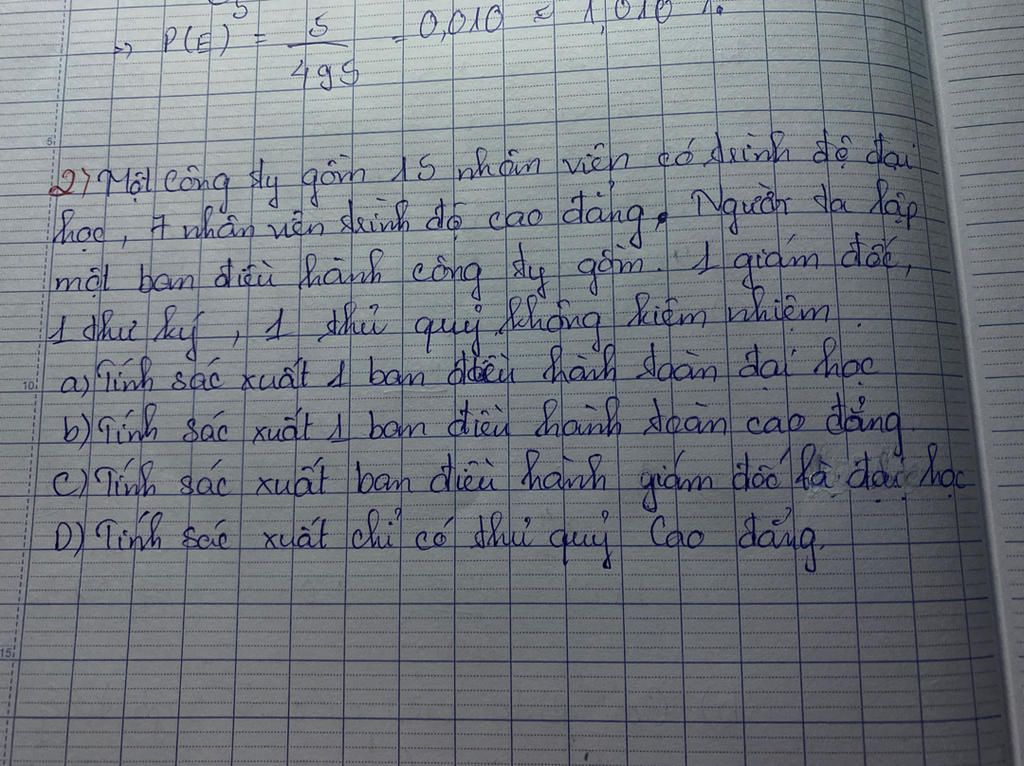 5
=> P(E) = 5/495 = 0,010 = 1,010 %
5
2) Một công ty gồm 15 nhân viên có trình độ đại
học, 7 nhân viên trình độ cao đẳng. Người ta lập
một ban điều hành công ty gồm. 1 giám đốc,
1 thư ký, 1 thủ quỹ không kiêm nhiệm
10 a) Tính sác xuất 1 ban điều hành toàn đại học
b) Tính sác xuất 1 ban điều hành toàn cao đẳng.
c) Tính sác xuất ban điều hành giám đốc là đại học
D) Tính sác xuất chỉ có thủ quỹ Cao đẳng.
15